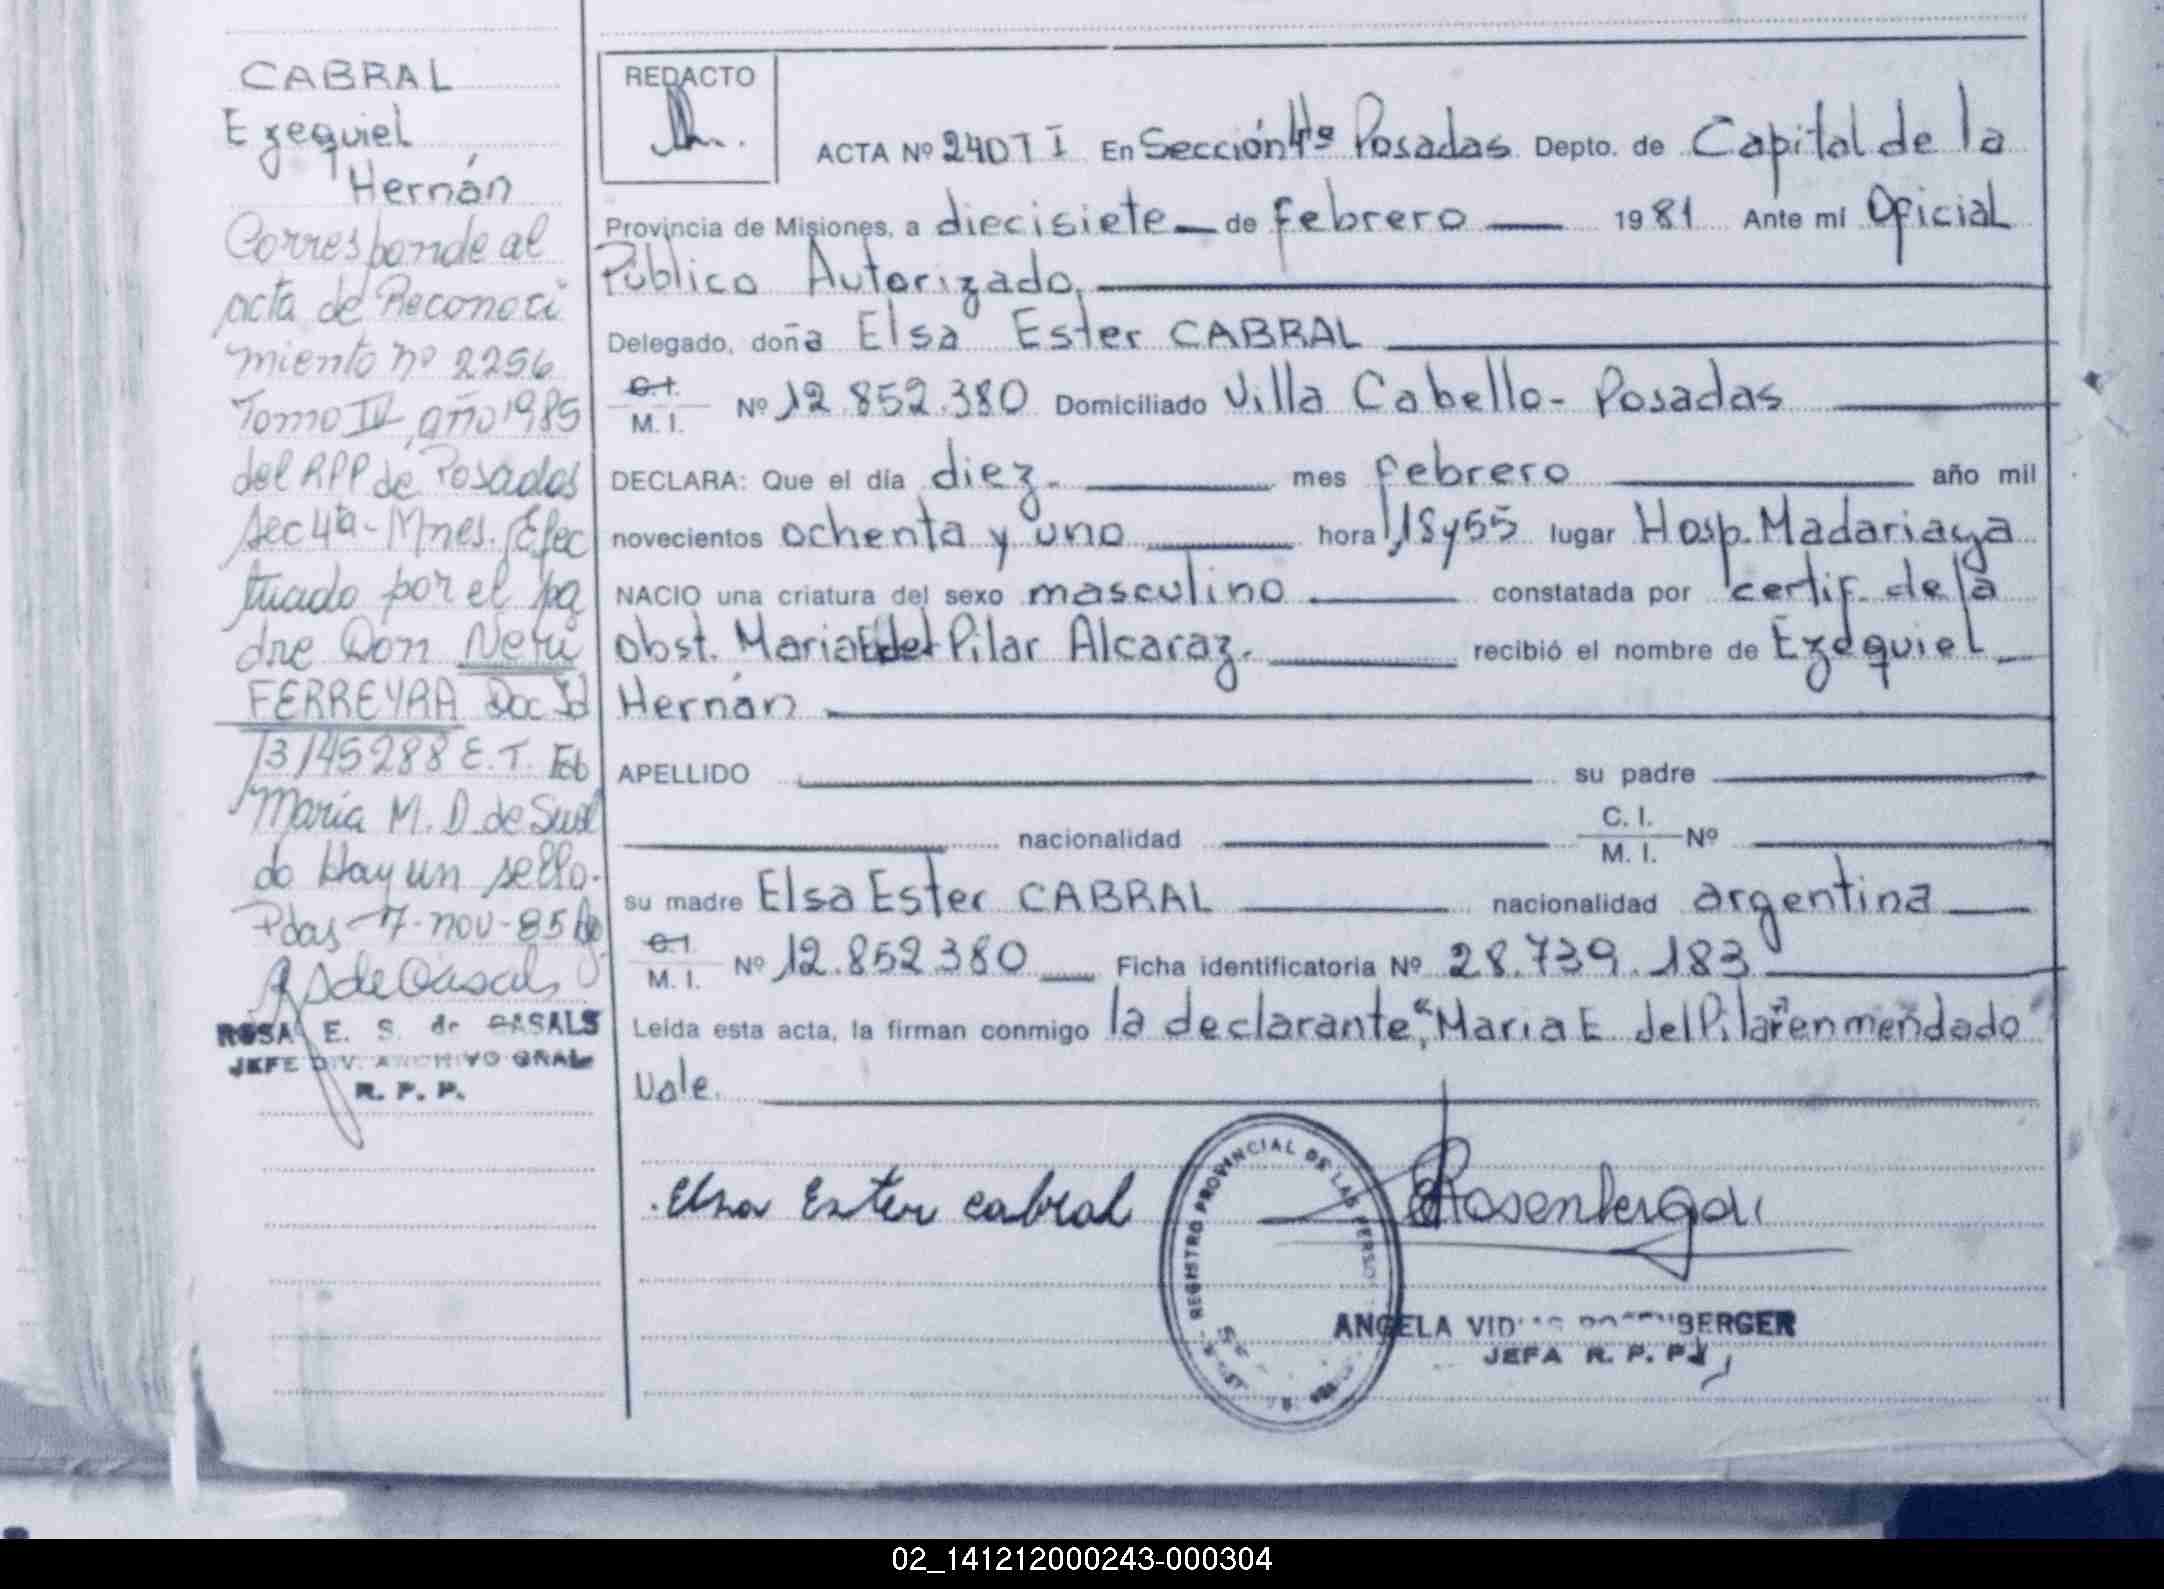 CABRAL
Ezequiel
Hernán
Corresponde al
acta de Reconoci
miento nº 2256
Tomo IV, año 1985
del RPP de Posadas
Sec 4ta - Mnes. Efec
tuado por el pa
dre Don Neri
FERREYRA Doc Id
13145288 E.T. Eb
Maria M. D. de Suel
do Hay un sello.
Pdas 7-nov-85
ROSA E. S. de CASALS
JEFE DIV. ARCHIVO GRAL
R. P. P.
REDACTO
ACTA Nº 2407 I En Sección 4º Posadas Depto. de Capital de la
Provincia de Misiones, a diecisiete de febrero 1981 Ante mí Oficial
Público Autorizado,
Delegado, doña Elsa Ester CABRAL
C.I.
M. I. Nº 12.852.380 Domiciliado Villa Cabello - Posadas
DECLARA: Que el día diez. mes febrero año mil
novecientos ochenta y uno hora 18y55 lugar Hosp. Madariaga
NACIO una criatura del sexo masculino constatada por certif. de la
obst. Maria E del Pilar Alcaraz. recibió el nombre de Ezequiel
Hernán
APELLIDO su padre
nacionalidad C. I.
M. I. Nº
su madre Elsa Ester CABRAL nacionalidad argentina
C.I.
M. I. Nº 12.852.380 Ficha identificatoria Nº 28.739.183
Leída esta acta, la firman conmigo la declarante, "Maria E del Pilar" enmendado
Vale.
Elsa Ester cabral
Rosenberger
REGISTRO PROVINCIAL DE LAS PERSO
ANGELA VID BERGER
JEFA R. P. P.
02_141212000243-000304